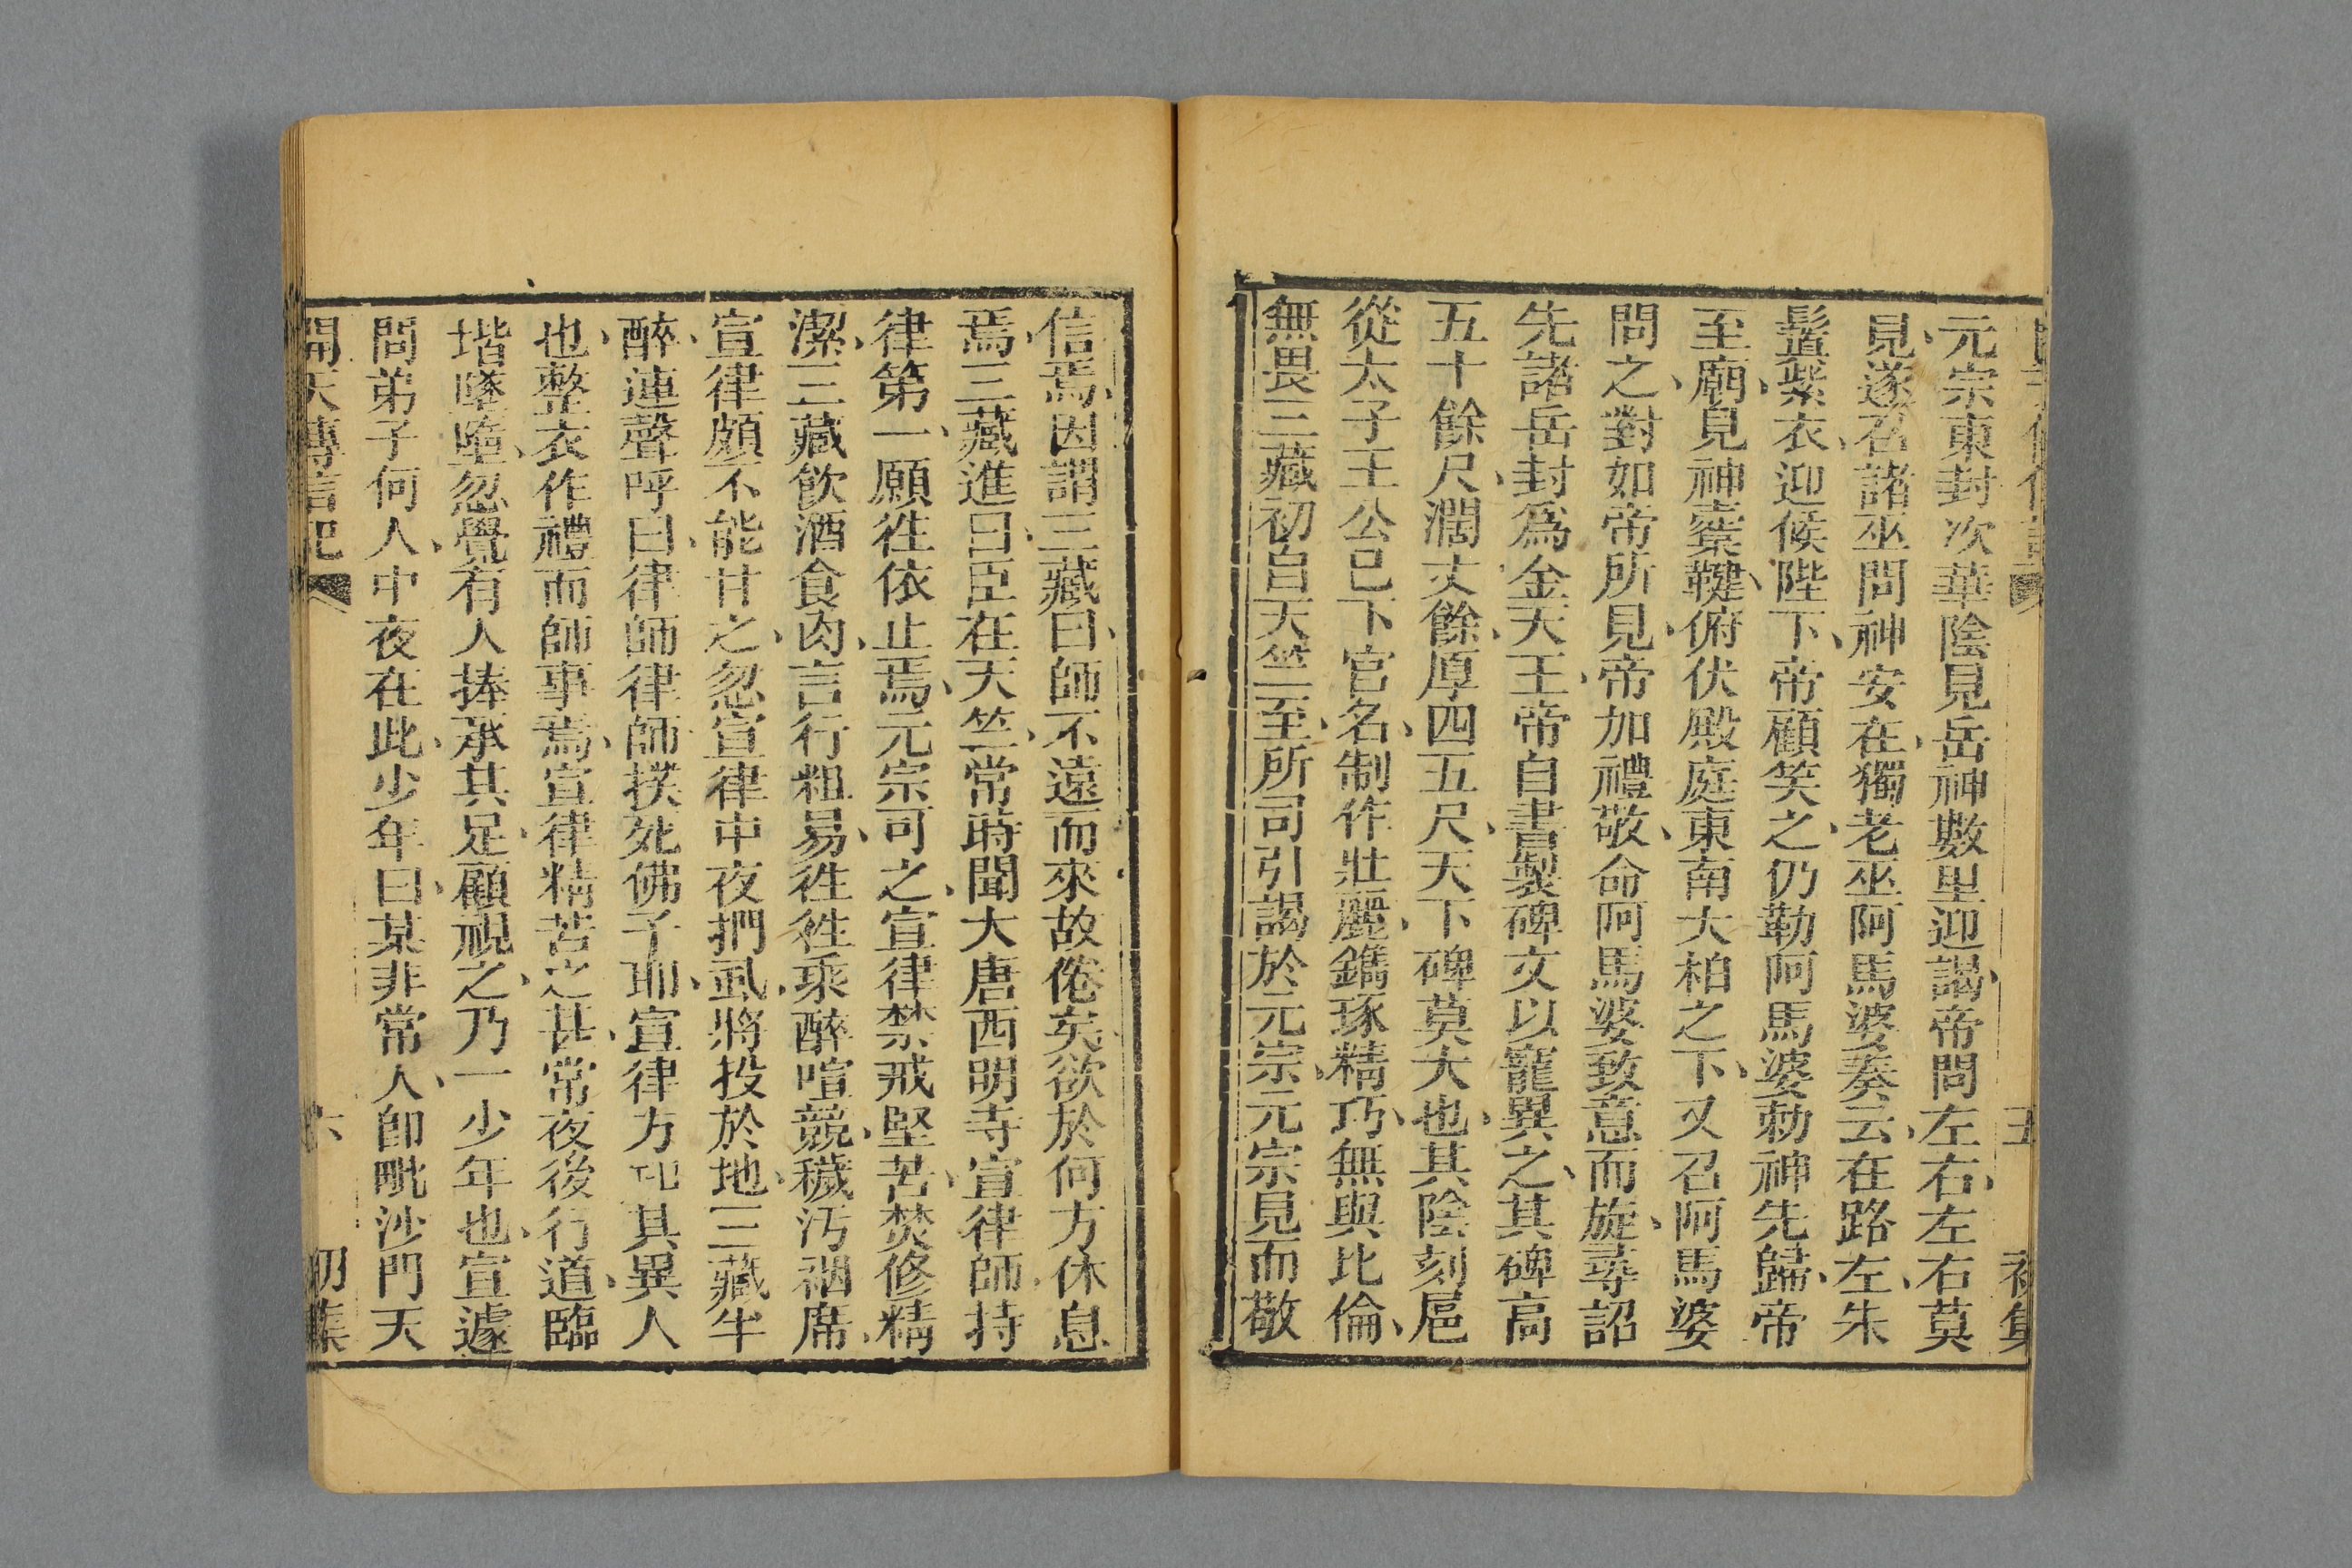 元宗東封次華陰見岳神數里迎謁、帝問左右、左右莫
見、遂召諸巫問神安在、獨老巫阿馬婆奏云、在路左、朱
髻紫衣、迎候陛下、帝顧笑之、仍勒阿馬婆勅神先歸、帝
至廟、見神櫜鞬、俯伏殿庭東南大柏之下、又召阿馬婆
問之、對如帝所見、帝加禮敬、命阿馬婆致意而旋、尋詔
先諸岳封為金天王、帝自書製碑文以寵異之、其碑高
五十餘尺、濶丈餘、厚四五尺、天下碑莫大也、其陰刻扈
從太子王公已下官名、制作壯麗、鐫琢精巧、無與比倫、
無畏三藏初自天竺至、所司引謁於元宗、元宗見而敬
信焉、因謂三藏曰、師不遠而來故倦矣、欲於何方休息
焉、三藏進曰、臣在天竺、常時聞大唐西明寺宣律師持
律第一、願往依止焉、元宗可之、宣律禁戒堅苦、焚修精
潔、三藏飲酒食肉、言行粗易、往往乘醉喧競、穢汚裀席、
宣律頗不能甘之、忽宣律中夜捫虱、將投於地、三藏半
醉、連聲呼曰、律師律師撲死佛子耶、宣律方知其異人
也、整衣作禮而師事焉、宣律精苦之甚、常夜後行道、臨
堦墜墮、忽覺有人捧承其足、顧視之、乃一少年也、宣遽
問弟子何人、中夜在此、少年曰、某非常人、即毗沙門天
開天傳信記
六
初集